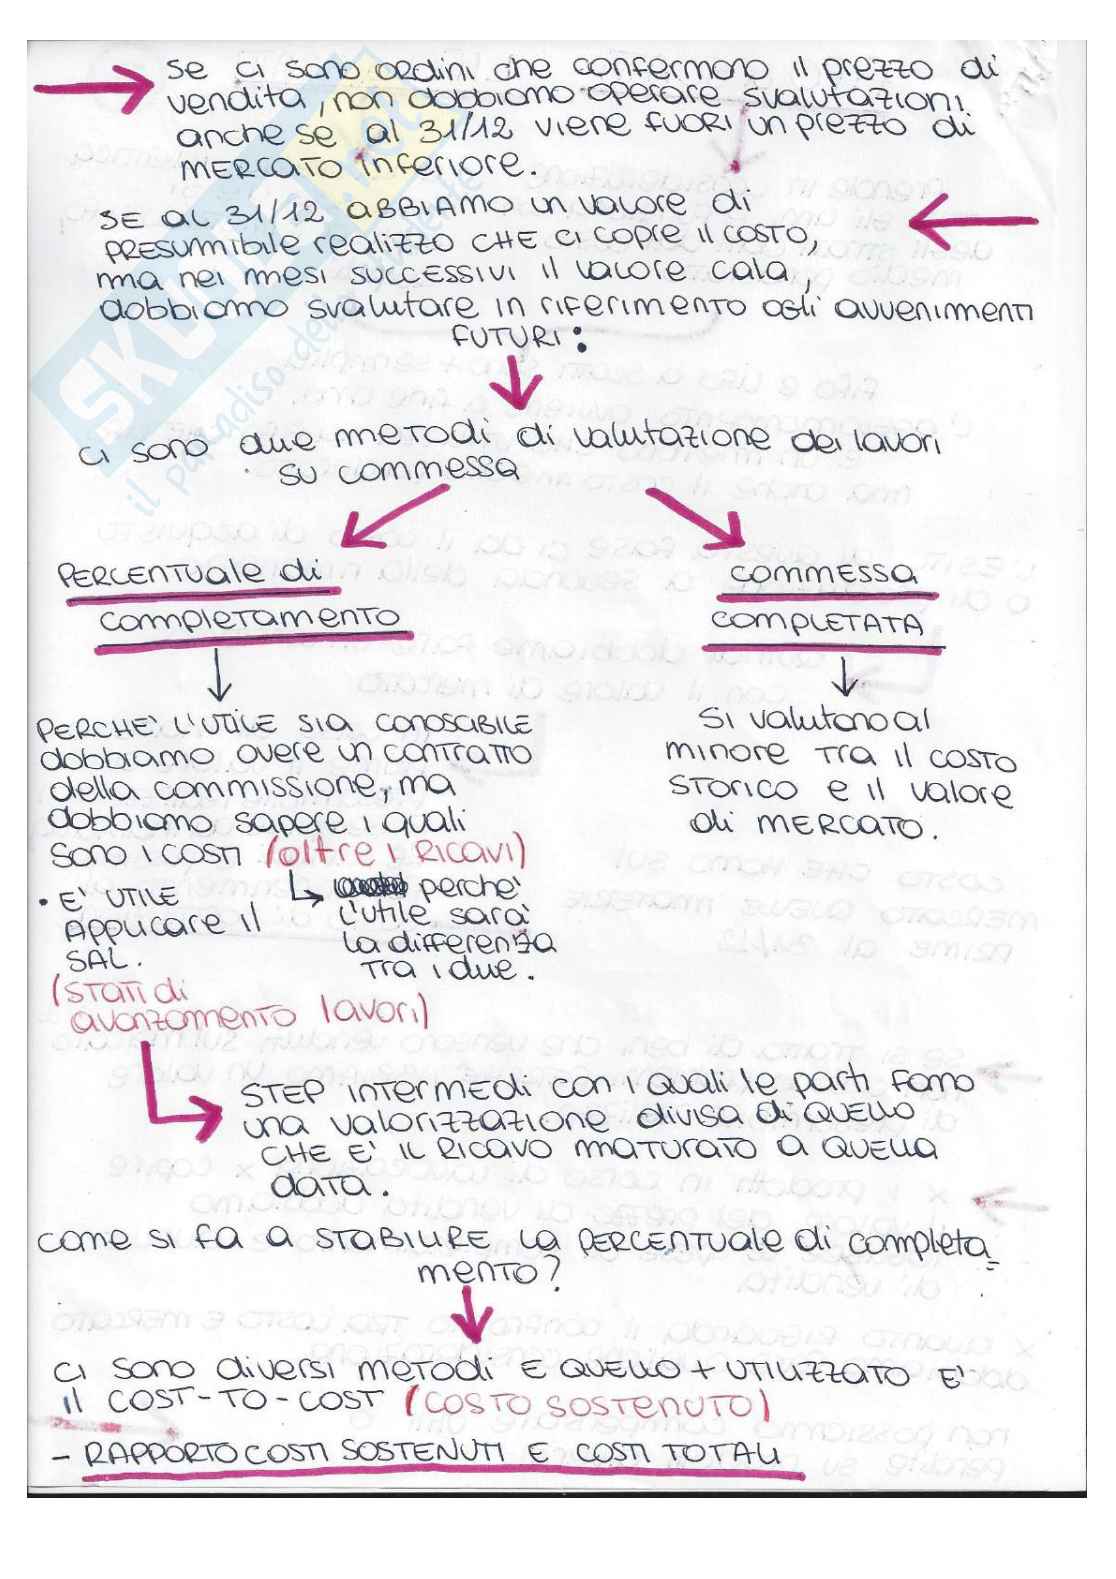 se ci sono ordini che confermano il prezzo di
vendita, non dobbiamo operare svalutazioni
anche se al 31/12 viene fuori un prezzo di
mercato inferiore.
SE al 31/12 abbiamo un valore di
presumibile realizzo CHE ci copre il costo,
ma nei mesi successivi il valore cala,
dobbiamo svalutare in riferimento agli avvenimenti
futuri:
ci sono due metodi di valutazione dei lavori
su commessa
PERCENTUALE di
completamento
COMMESSA
COMPLETATA
PERCHE' L'UTILE SIA CONOSCIBILE
dobbiamo avere un contratto
della commissione, ma
dobbiamo sapere i quali
sono i costi (oltre i RICAVI)
perche'
l'utile sara'
la differenza
tra i due.
• E' UTILE
APPLICARE il
SAL.
(STATI di
avanzamento lavori)
Si valutano al
minore tra il costo
storico e il valore
di MERCATO.
STEP intermedi con i quali le parti fano
una valorizzazione divisa di QUELLO
CHE E' IL RICAVO MATURATO a QUELLA
data.
come si fa a STABILIRE la PERCENTUALE di completa
mento?
ci sono diversi metodi E QUELLO + UTILIZZATO E'
il COST-TO-COST (COSTO SOSTENUTO)
- RAPPORTO COSTI SOSTENUTI E COSTI TOTALI
SKUOLA.net
il paradiso dello studente